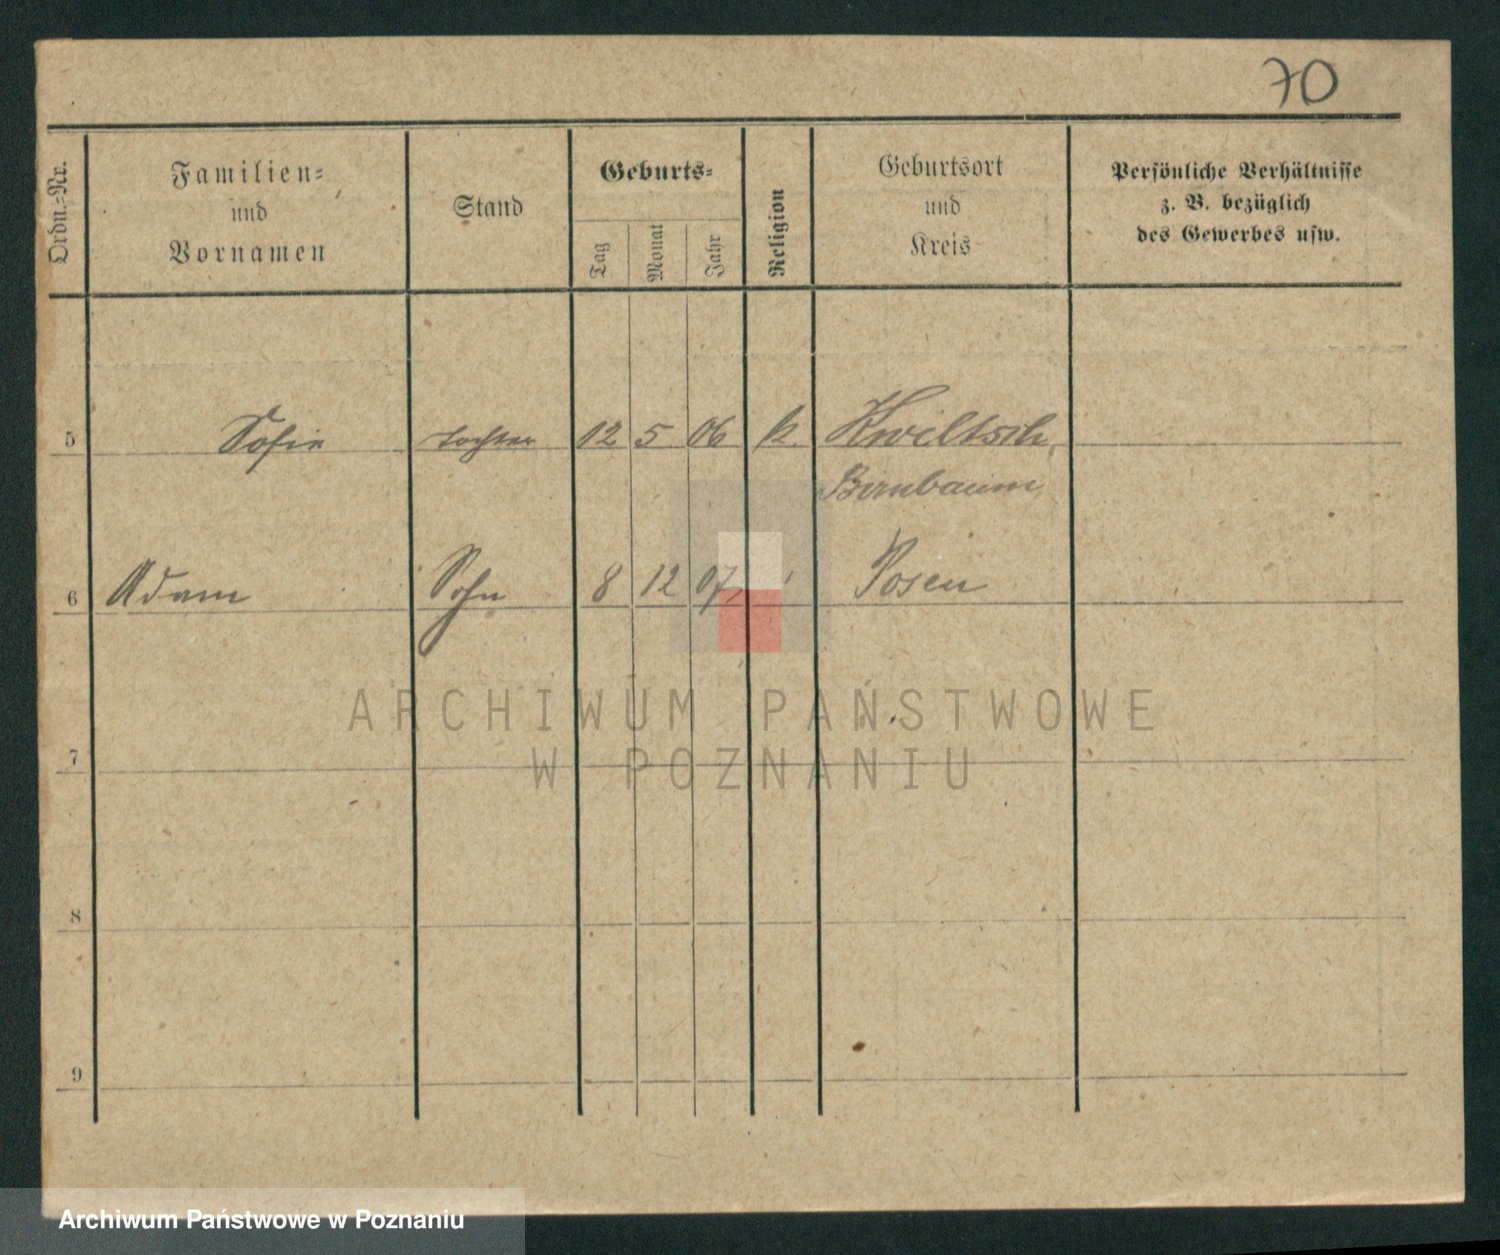 70
Ordn.-Nr.
Familien-
und
Vornamen
Stand
Geburts-
Tag
Monat
Jahr
Religion
Geburtsort
und
Kreis
Persönliche Verhältnisse
z. B. bezüglich
des Gewerbes usw.
5 Sofie Tochter 12 5 06 k. Kwiltsch,
Birnbaum
6 Adam Sohn 8 12 07 Posen
7
8
9
ARCHIWUM PAŃSTWOWE
W POZNANIU
Archiwum Państwowe w Poznaniu